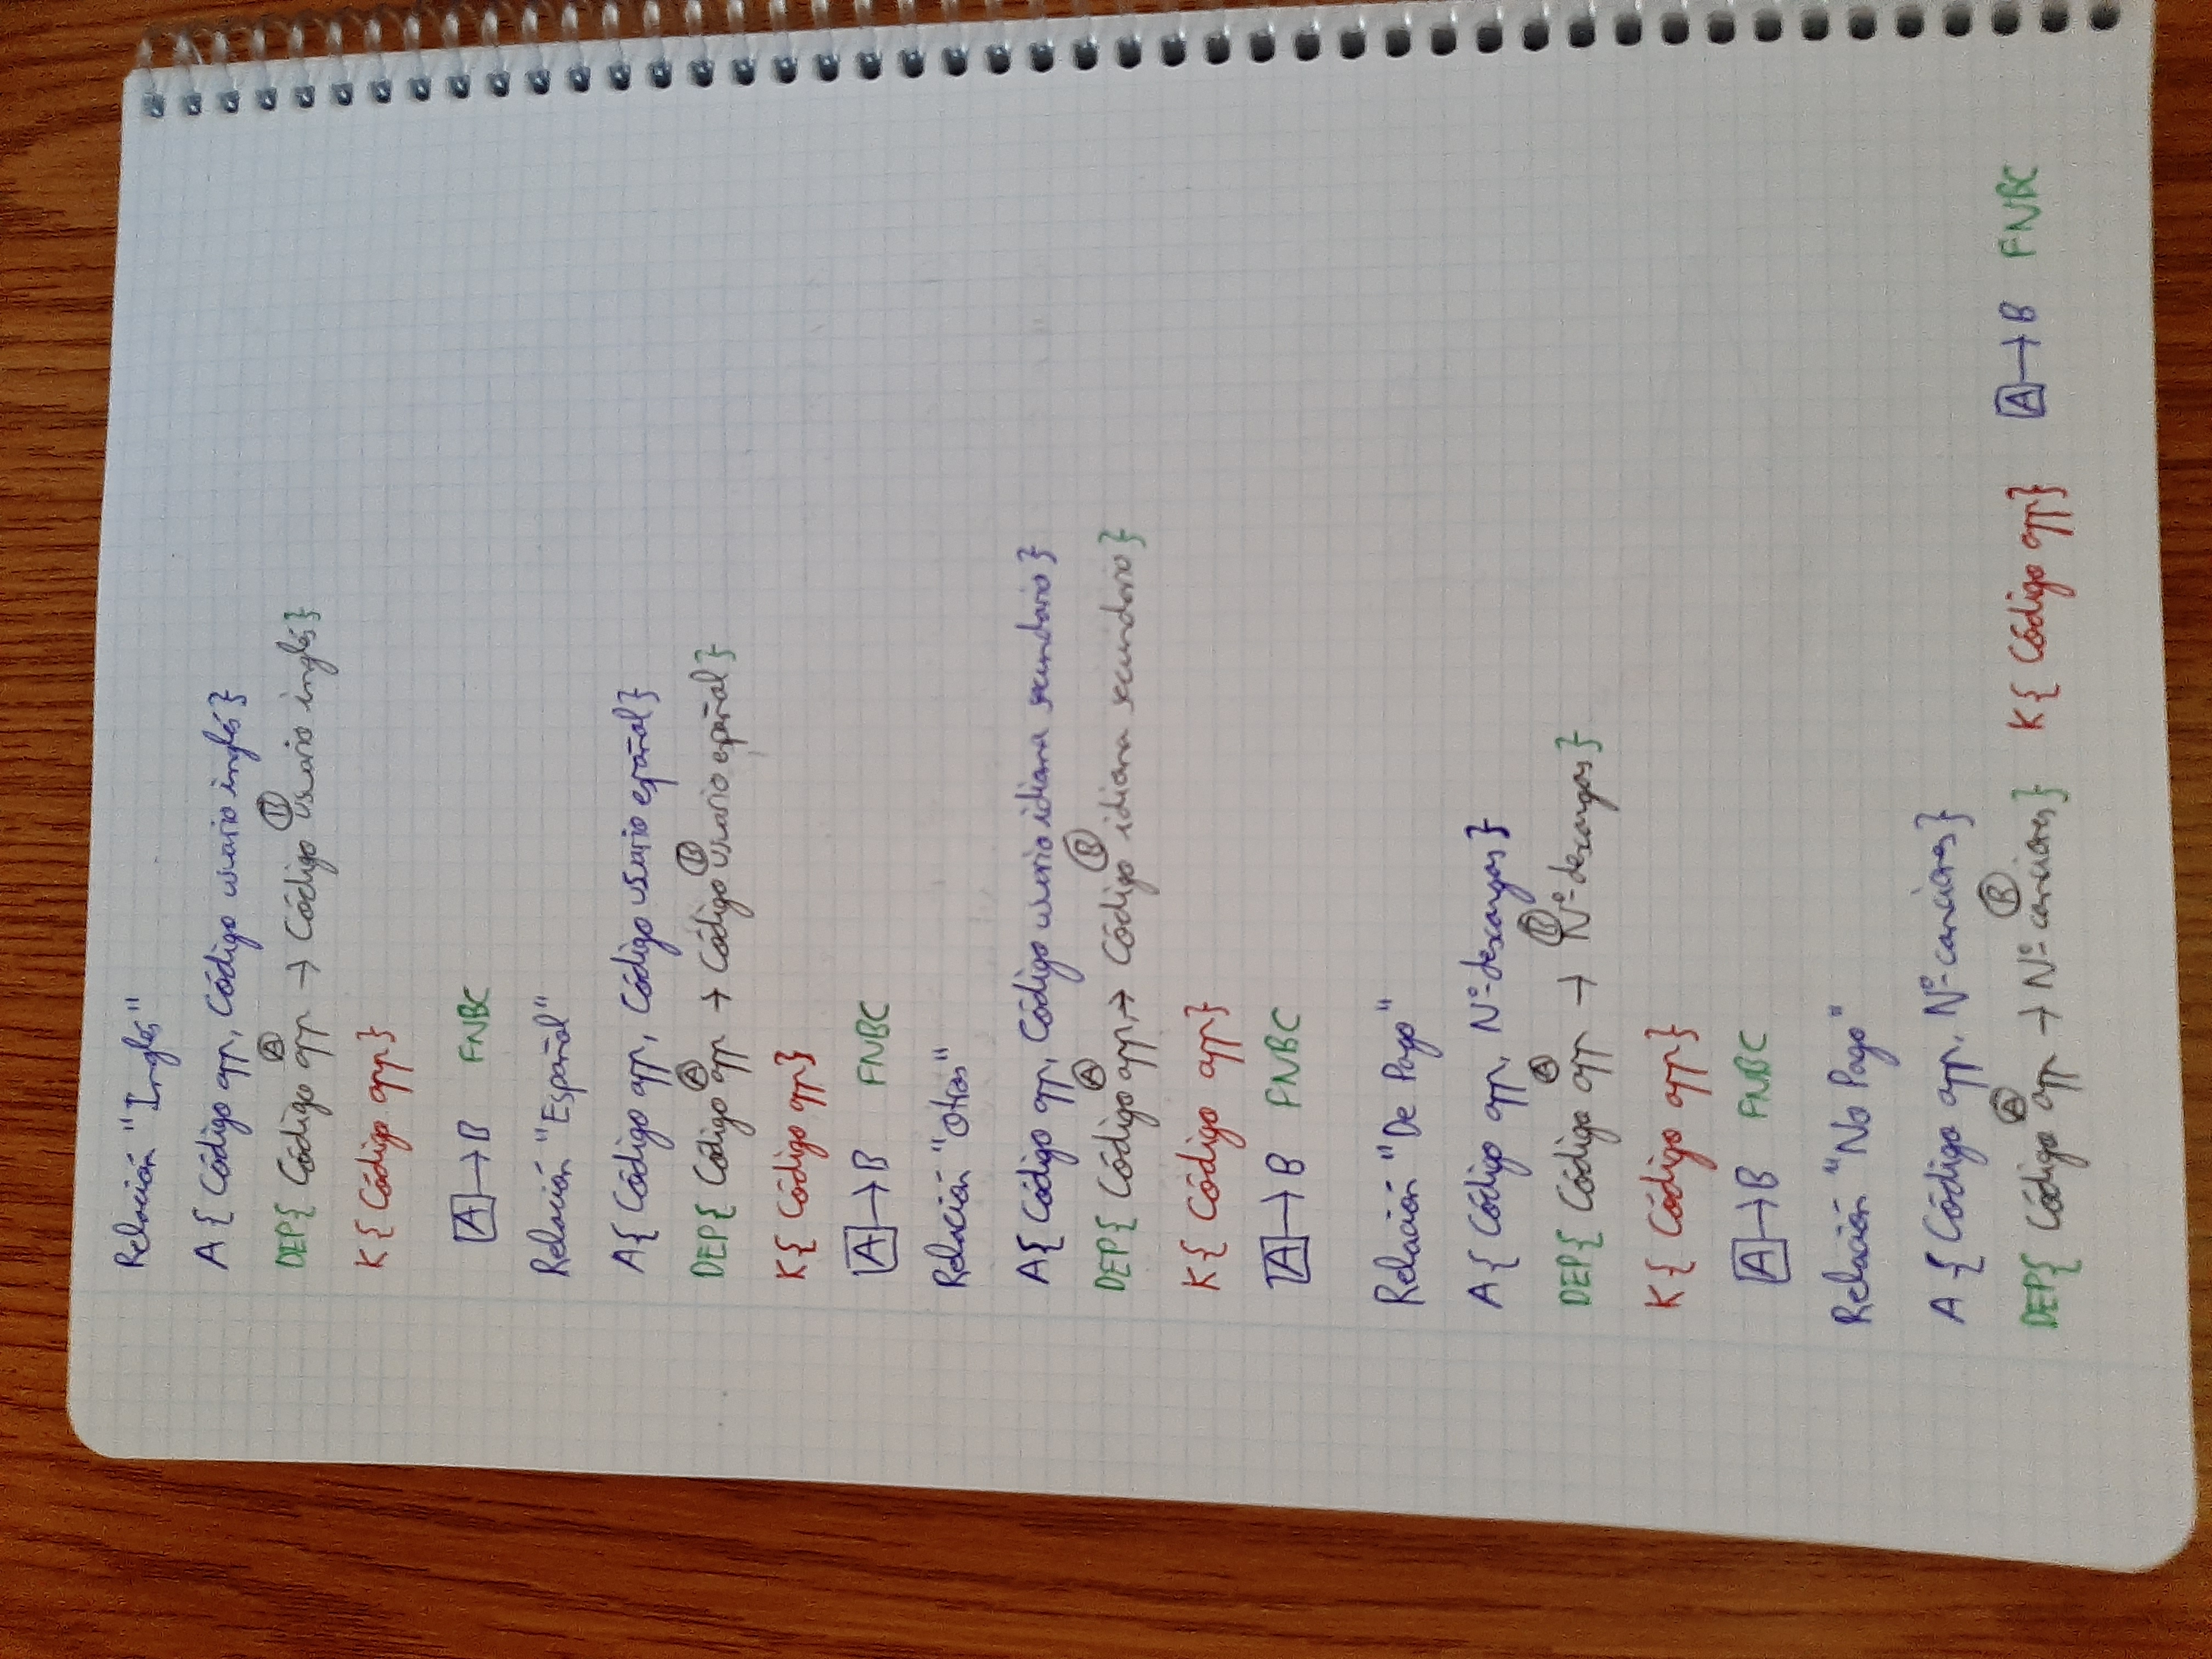 Relación "Inglés"
A{ Código app, Código usuario inglés}
DEP{ Código app → Código usuario inglés}
A B
K{ Código app}
A → B FNBC
Relación "Español"
A{ Código app, Código usuario español}
DEP{ Código app → Código usuario español}
A B
K{ Código app}
A → B FNBC
Relación "Otros"
A{ Código app, Código usuario idioma secundario}
DEP{ Código app, → Código idioma secundario}
A B
K{ Código app}
A → B FNBC
Relación "De Pago"
A{ Código app, Nº descargas}
DEP{ Código app → Nº descargas}
A B
K{ Código app}
A → B FNBC
Relación "No Pago"
A {Código app, Nº canciones}
DEP{ Código app → Nº canciones} K{ Código app} A → B FNBC
A B